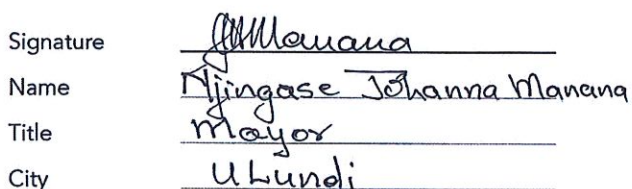 Signature JMManana
Name Njingase Johanna Manana
Title Mayor
City ULundi